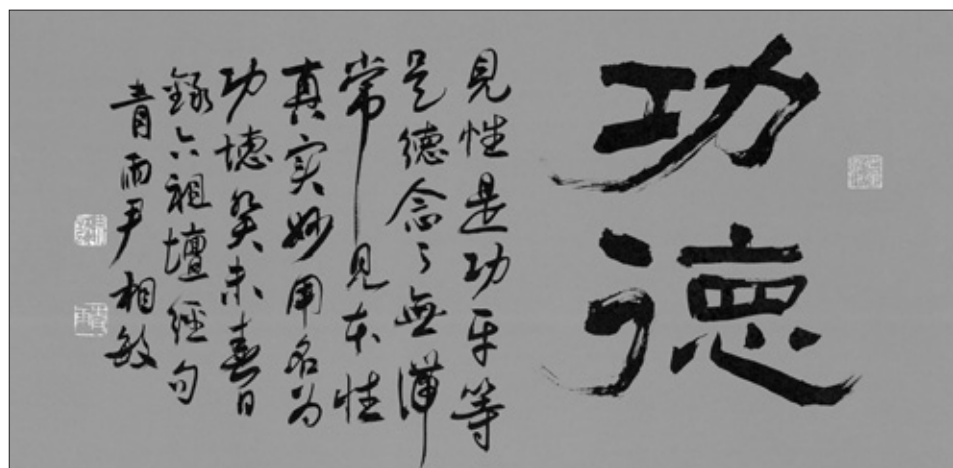 功德
見性是功平等
是德念々無滯
常見本性
真实妙用名为
功德癸未春日
錄六祖壇經句
青雨尹相敏